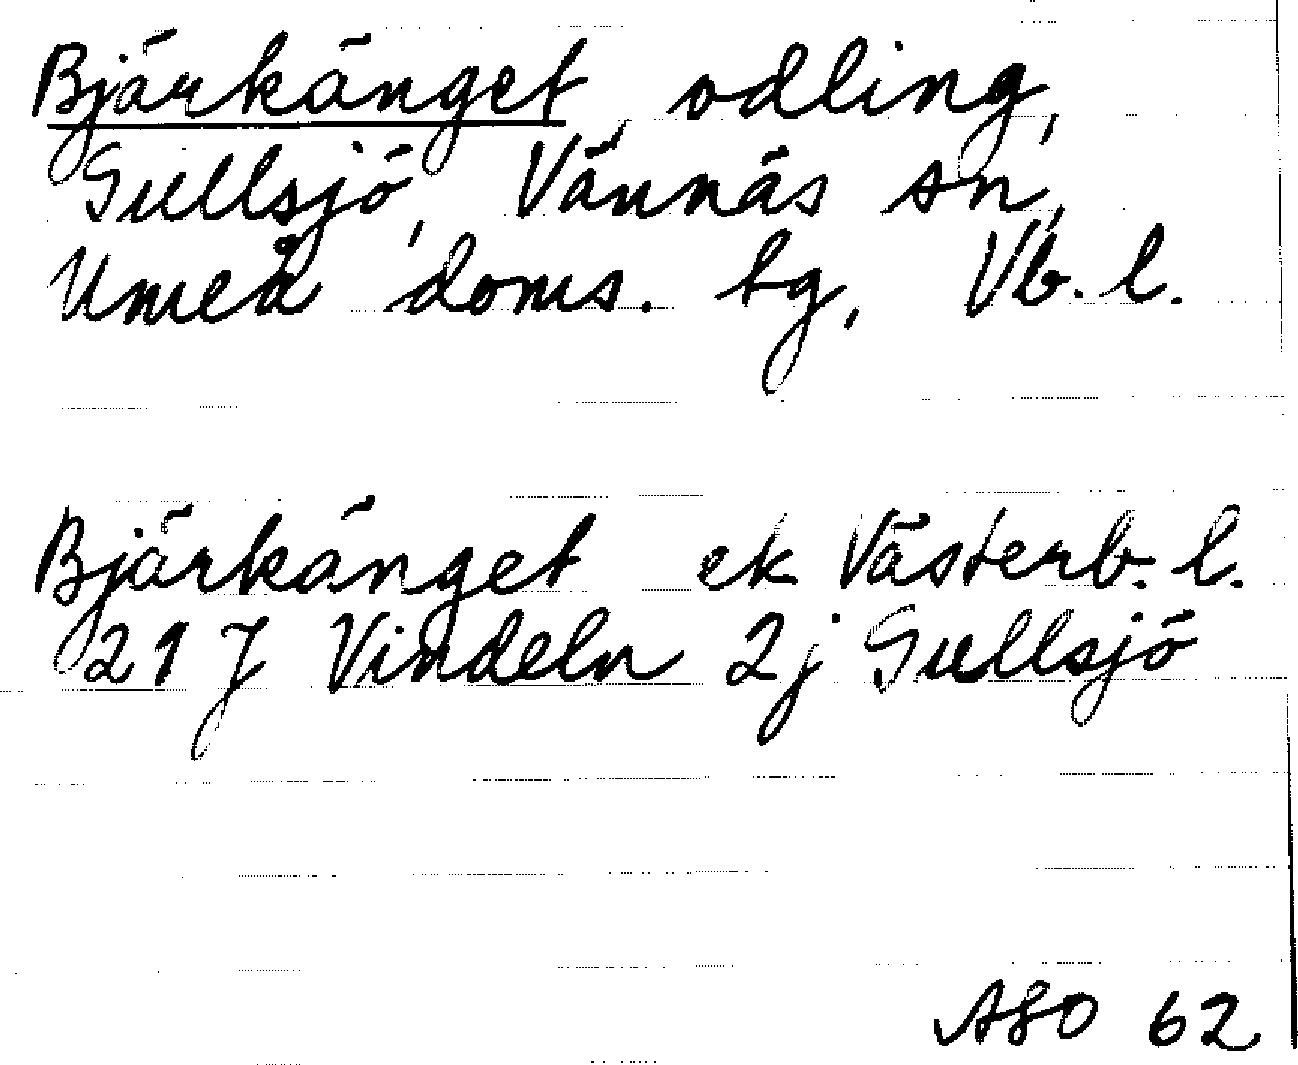 Bjärkänget, odling,
Gullsjö, Vännäs sn,
Umeå doms. tg, Vb. l.
Bjärkänget ek Västerb. l.
21 J Vindeln 2j Gullsjö
ASO 62